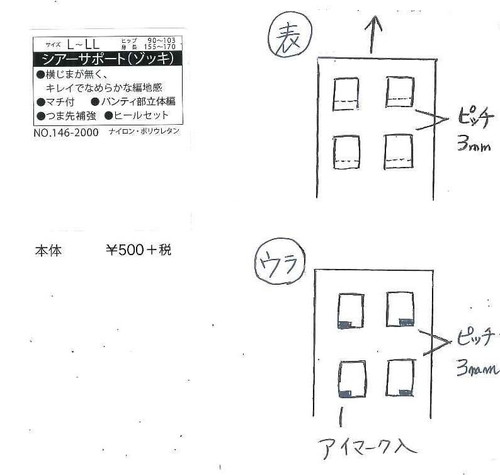 サイズ L~LL ヒップ 90~103
身長 155~170
シアーサポート(ゾッキ)
●横じまが無く、
キレイでなめらかな編地感
●マチ付 ●パンティ部立体編
●つま先補強 ●ヒールセット
NO.146-2000 ナイロン・ポリウレタン
本体 ¥500+税
表
ピッチ
3mm
ウラ
ピッチ
3mm
アイマーク入